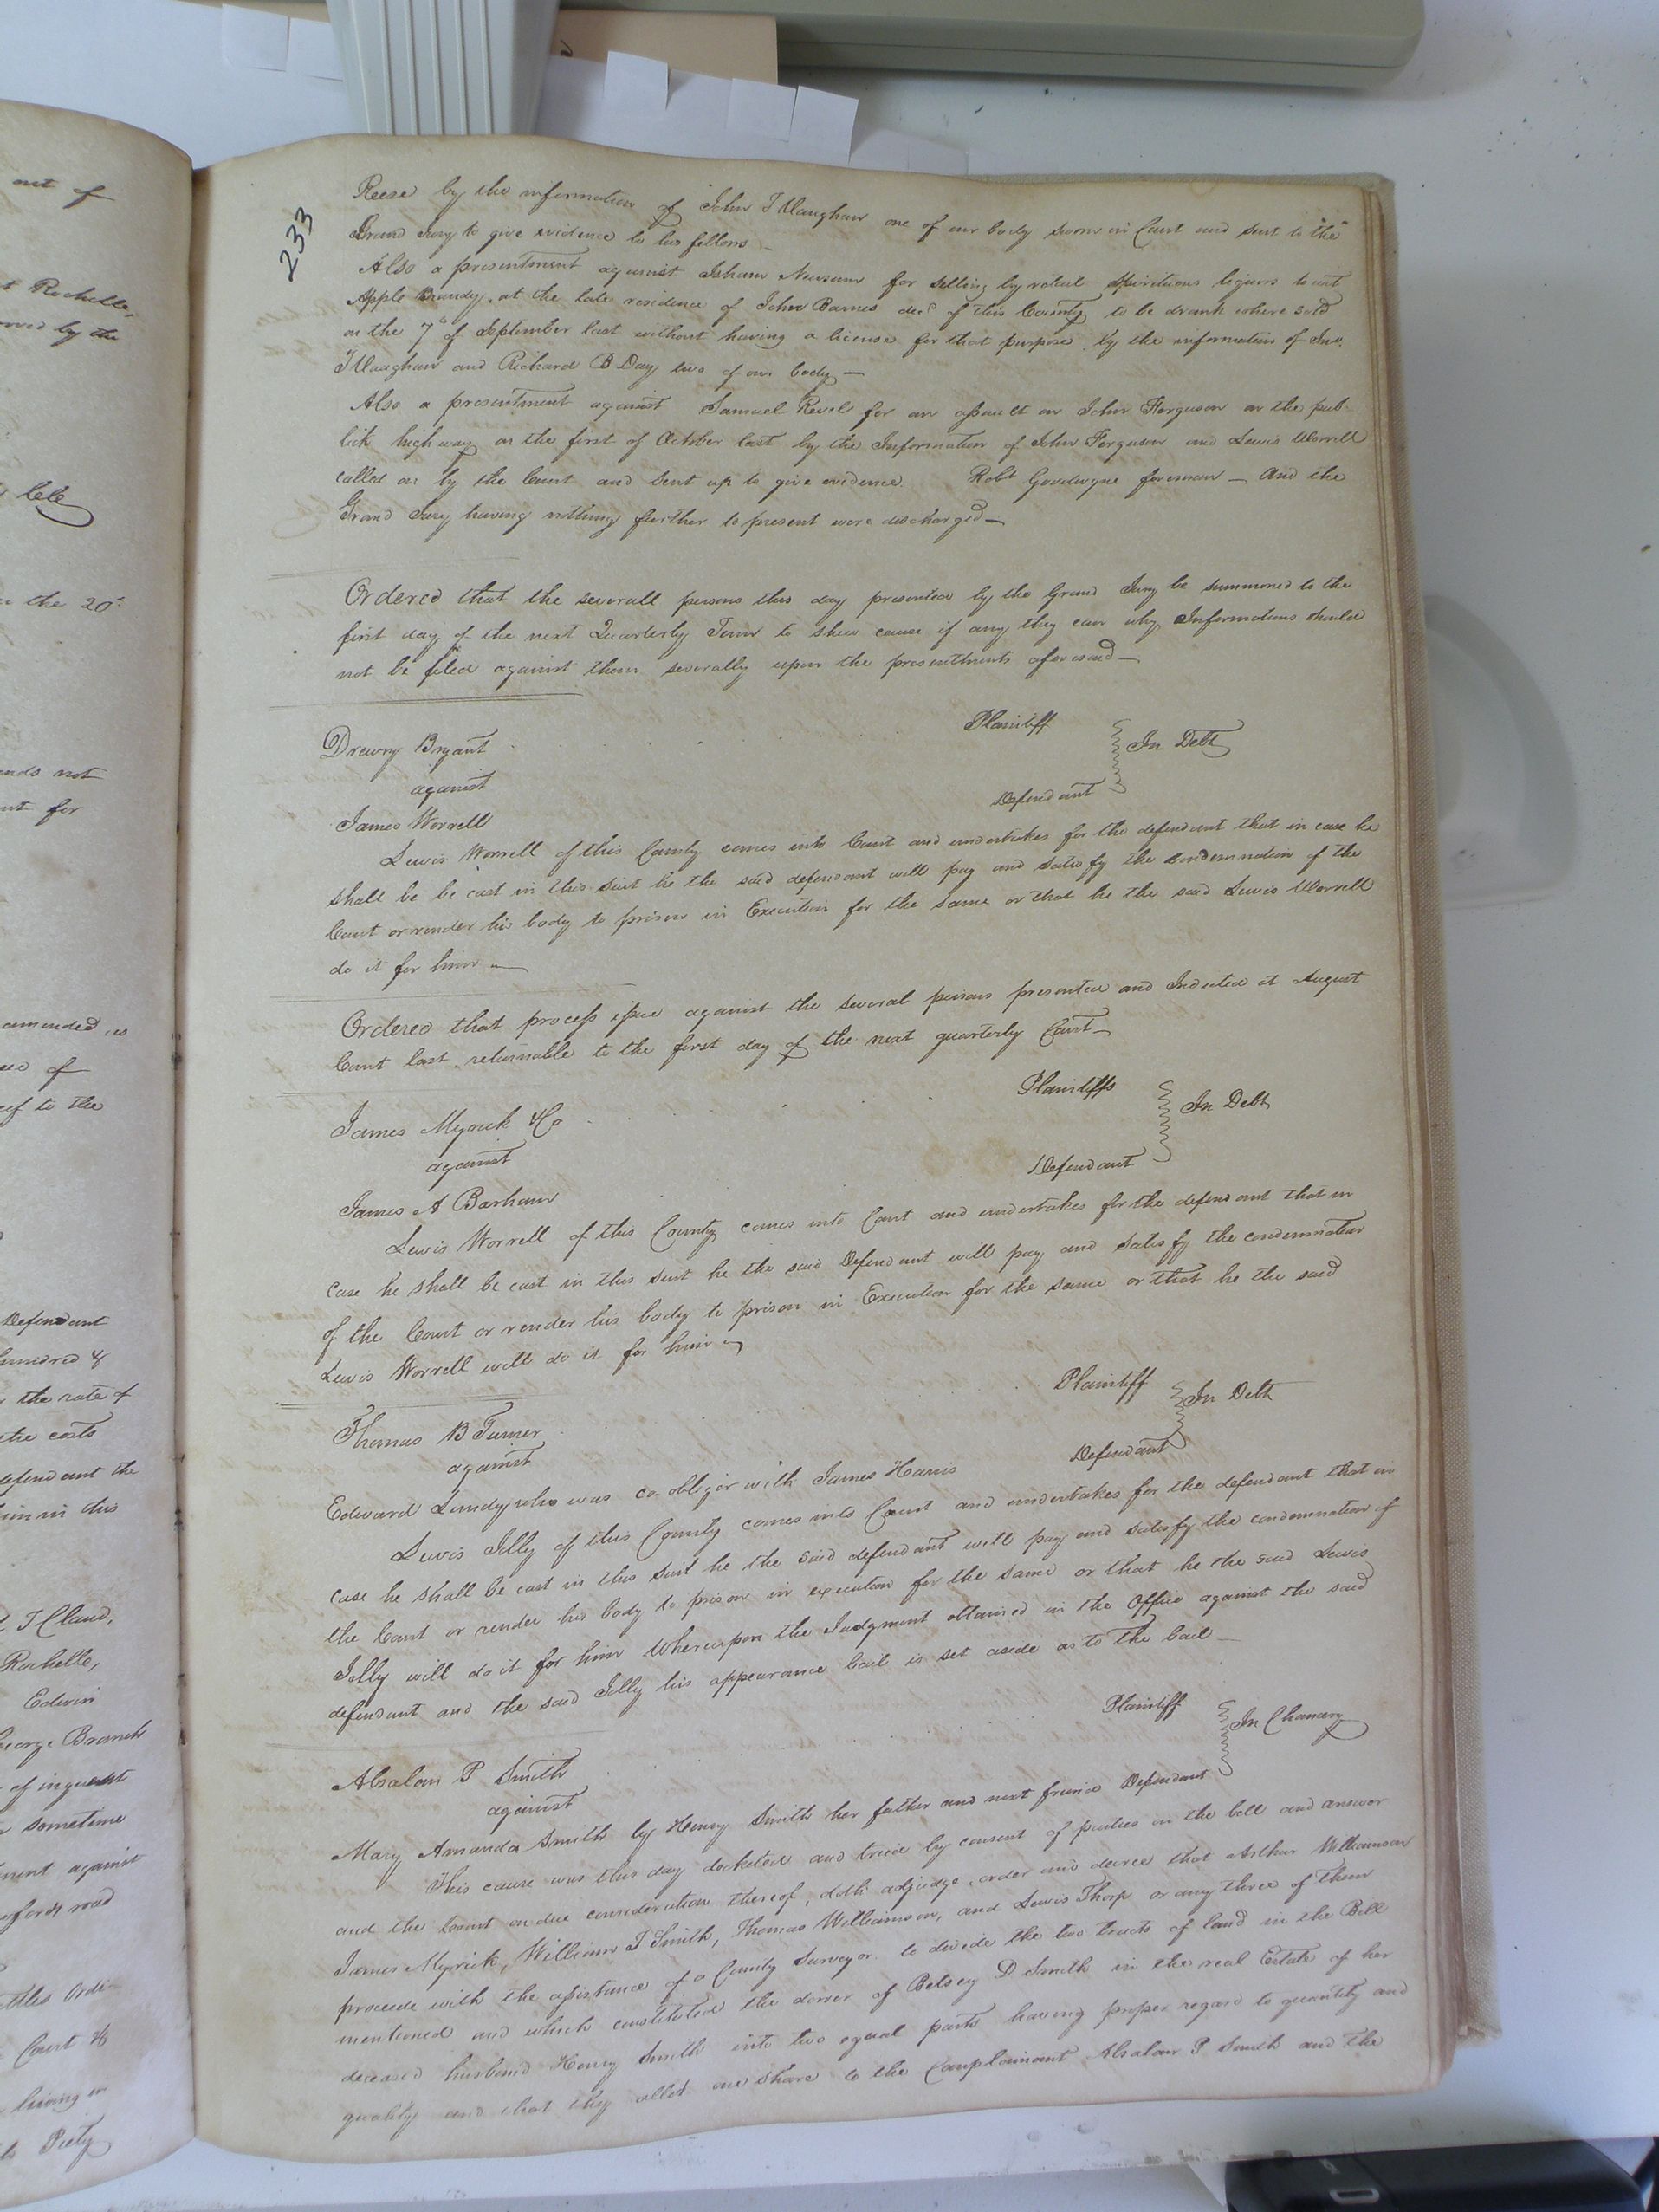 out of
t Rochelle,
by the
the 20th
nds not
nt for
amended, is
of
of to the
Defendant
hundred &
the rate of
the costs
defendant the
him in this
T Claud,
Rochelle,
Edwin
George Branch
of inquest
sometime
ment against
fords road
Court
living in
Piety
233
Reese by the information of John T Vaughan one of our body sworn in Court and sent to the
Grand Jury to give evidence to his fellows
Also a presentment against Isham Newsum for selling by retail spirituous liquors to wit
Apple Brandy, at the late residence of John Barnes decd of this County to be drank where sold
on the 7th of September last without having a license for that purpose by the information of Jno.
T Vaughan and Richard B Day two of our body —
Also a presentment against Samuel Revel for an assault on John Ferguson on the pub-
lick high way on the first of October last by the Information of John Ferguson and Lewis Worrell
called on by the Court and sent up to give evidence. Robt Goodwyne foreman — And the
Grand Jury having nothing further to present were discharged —
Ordered that the severall persons this day presented by the Grand Jury be summoned to the
first day of the next Quarterly Term to shew cause if any they can why Informations should
not be filed against them severally upon the presentments aforesaid —
Drewry Bryant Plaintiff
against In Debt
James Worrell Defendant
Lewis Worrell of this County comes into Court and undertakes for the defendant that in case he
shall be be cast in this suit he the said defendant will pay and satisfy the condemnation of the
Court or render his body to prison in Execution for the same or that he the said Lewis Worrell
do it for him —
Ordered that process issue against the several persons presented and Indicted at August
Court last returnable to the first day of the next quarterly Court —
James Myrick & Co Plaintiffs
against In Debt
James A Barham Defendant
Lewis Worrell of this County comes into Court and undertakes for the defendant that in
case he shall be cast in this suit he the said Defendant will pay and satisfy the condemnation
of the Court or render his body to prison in Execution for the same or that he the said
Lewis Worrell will do it for him
Thomas B Turner Plaintiff
against In Debt
Edward Lundy who was co-obligor with James Harris Defendant
Lewis Jelly of this County comes into Court and undertakes for the defendant that in
case he shall be cast in this suit he the said defendant will pay and satisfy the condemnation of
the Court or render his body to prison in execution for the same or that he the said Lewis
Jelly will do it for him Whereupon the Judgment obtained in the Office against the said
defendant and the said Jelly his appearance bail is set aside as to the bail —
Absalom P Smith Plaintiff
against In Chancery
Mary Amanda Smith by Henry Smith her father and next friend Defendant
This cause was this day docketed and tried by consent of parties on the bill and answer
and the Court on due consideration thereof, doth adjudge, order and decree that Arthur Williamson
James Myrick, William T Smith, Thomas Williamson, and Lewis Thorp or any three of them
proceede with the assistance of a County Surveyor to divide the two tracts of land in the Bill
mentioned and which constituted the dower of Betsey D Smith in the real Estate of her
deceased husband Henry Smith into two equal parts having proper regard to quantity and
quality and that they allot one share to the Complainant Absalom P Smith and the